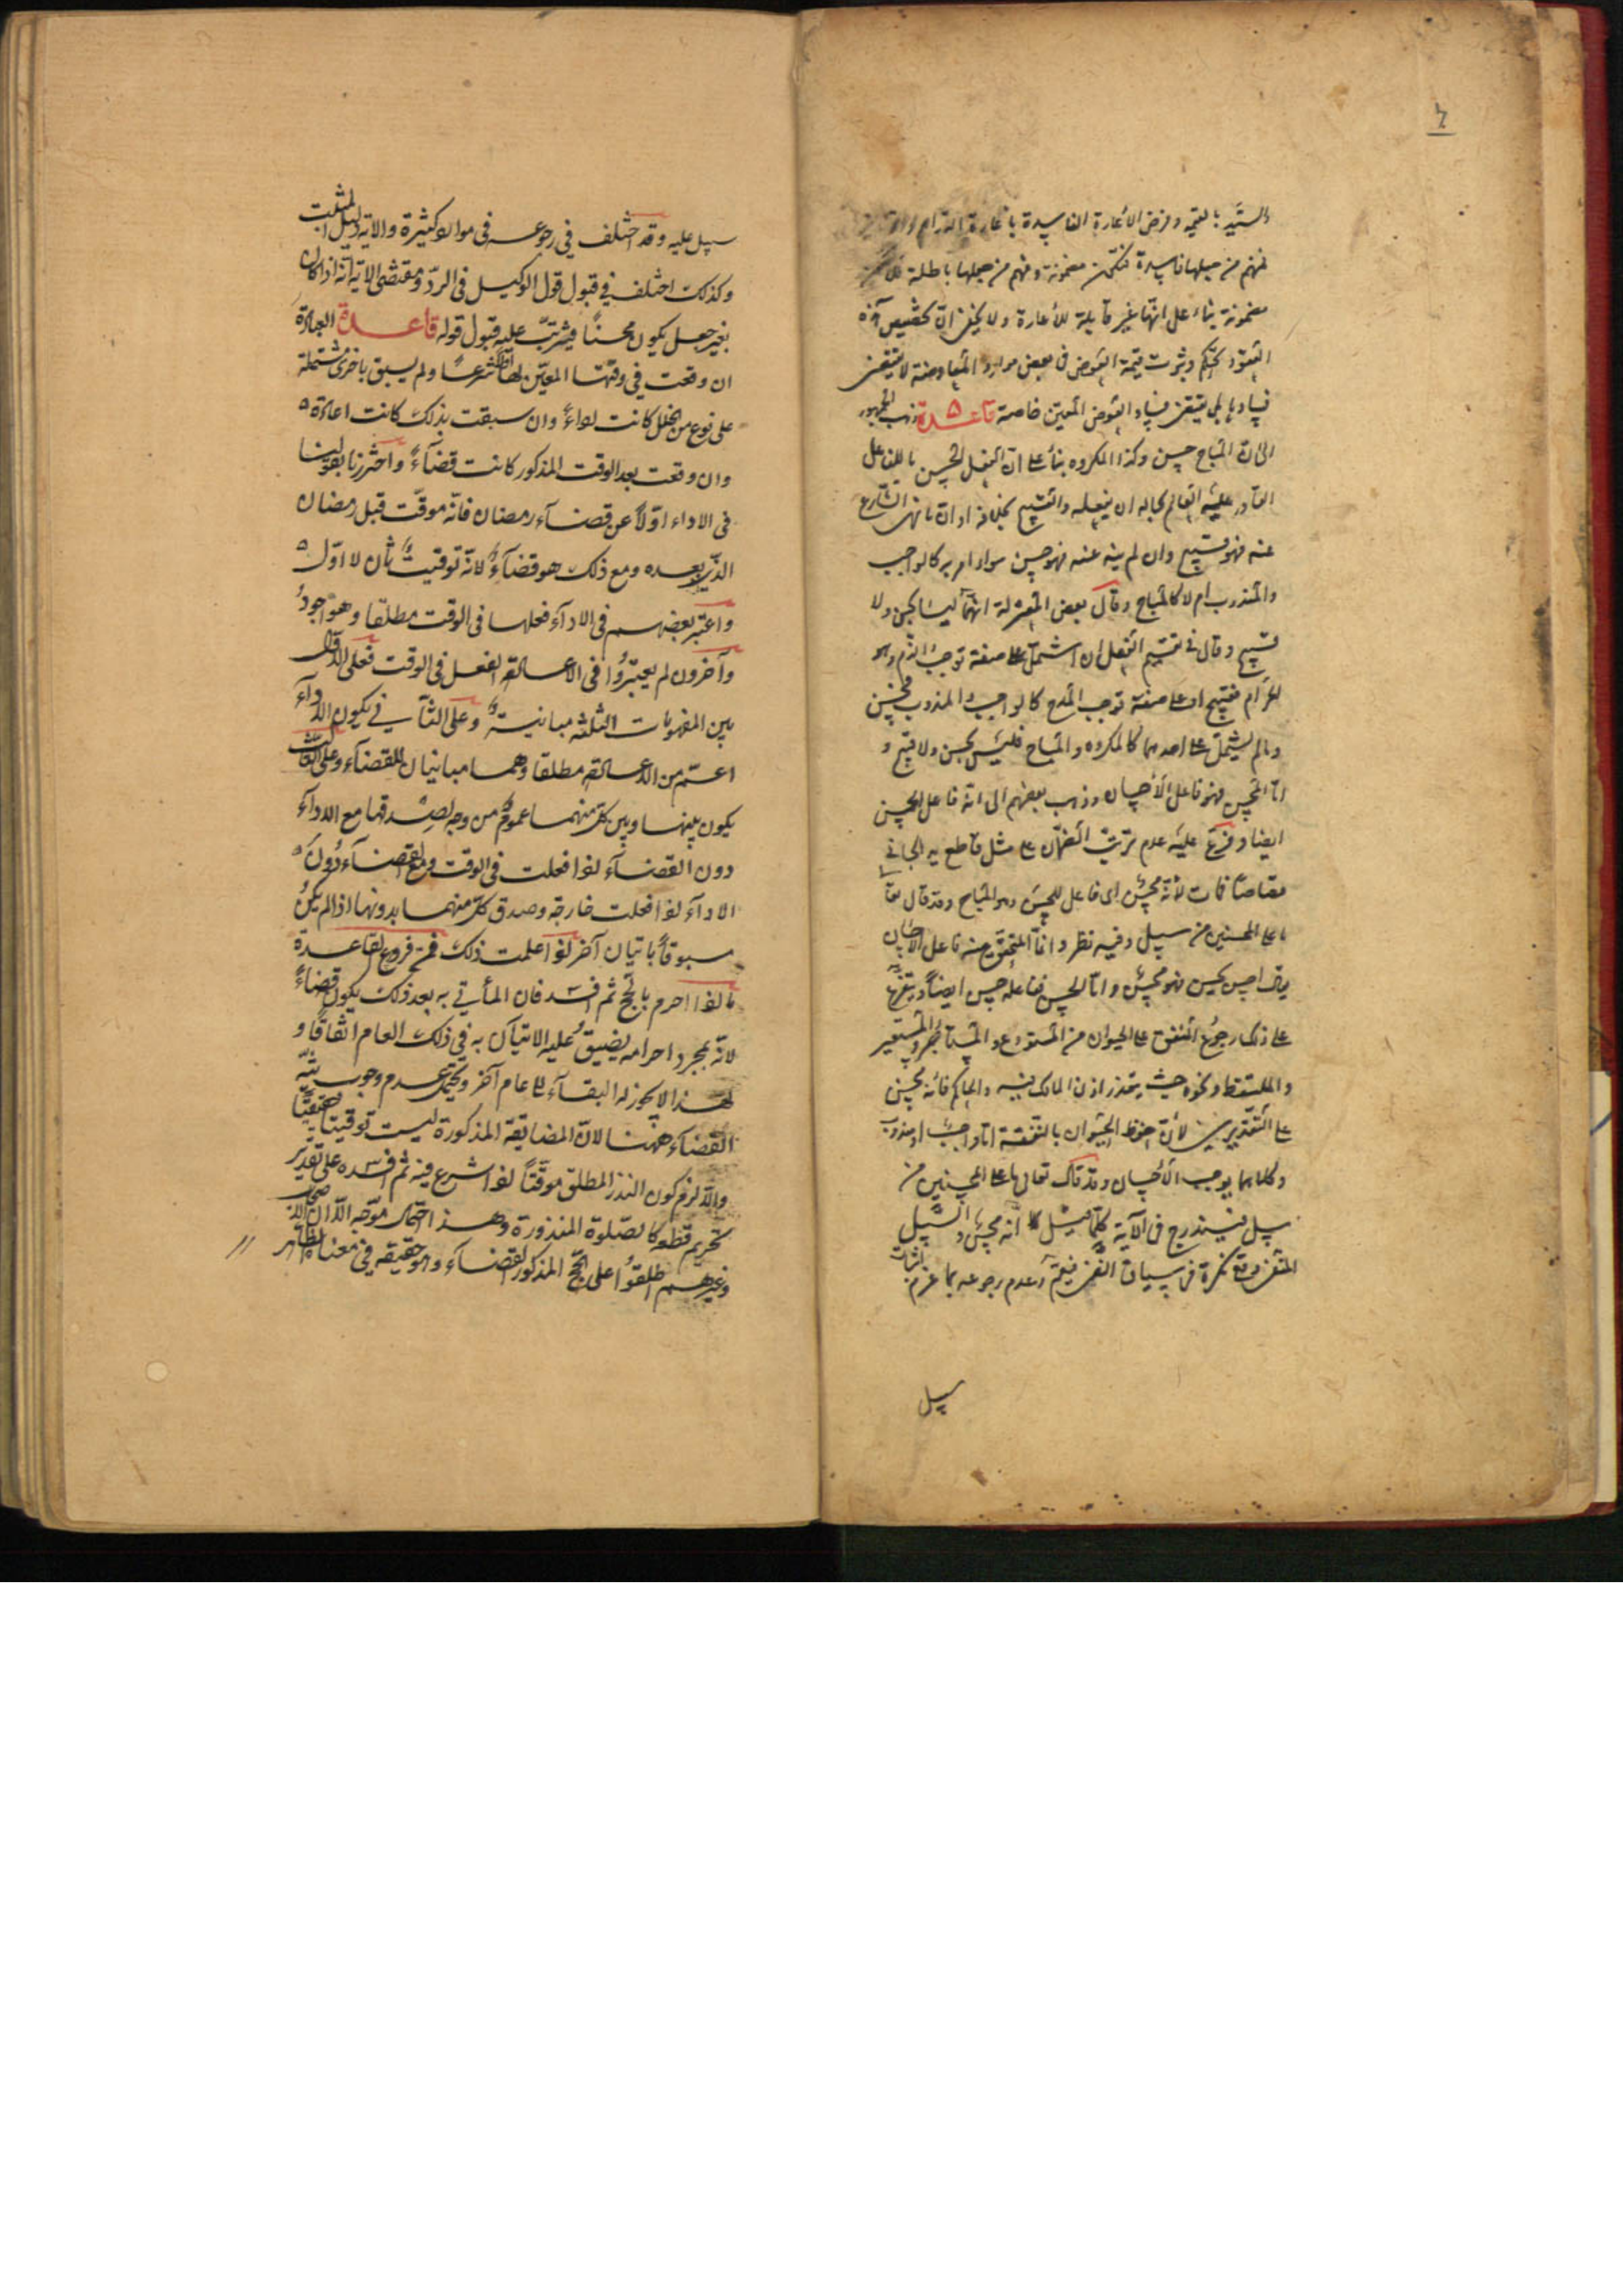 ٤
والسيد بالقيمة وفرض الاعارة الفاسدة باعارة الدراهم
فمنهم من جعلها فاسدة فتكون مضمونة ومنهم من جعلها باطلة فلا تكون
مضمونة بناء على انها غير قابلة للاعارة ولا يخفى ان تخصيص هذه
العقود الحكم وثبوت قيمة العوض في بعض موارد المعاوضة لا يقتضي
فسادها بل يقتضي فساد العوض المعين خاصة قاعدة ذهب الجمهور
الى ان المباح حسن وكذا المكروه بناء على ان الفعل الحسن ما للفاعل
القادر عليه العالم بحاله ان يفعله والقبيح بخلافه او ان ما نهى الشارع
عنه فهو قبيح وان لم ينه عنه فهو حسن سواء امر به كالواجب
والمندوب ام لا كالمباح وقال بعض المعتزلة انهما ليسا بحسن ولا
قبيح وقال في تقسيم الفعل ان اشتمل على صفة توجب الذم وهو
الحرام فقبيح او على صفة توجب المدح كالواجب والمندوب فحسن
وما لم يشتمل على احدهما كالمكروه والمباح فليس بحسن ولا قبيح و
اما المحسن فهو فاعل الاحسان وذهب بعضهم الى انه فاعل الحسن
ايضا وفرع عليه عدم ترتب الضمان على مثل قاطع يد الجاني
قصاصا فمات لانه محسن اى فاعل للحسن وهو المباح وقد قال تعا
ما على المحسنين من سبيل وفيه نظر وانما المتحقق منه فاعل الاحسان
يقال احسن يحسن فهو محسن واما الحسن ففاعله حسن ايضا ويتفرع
على ذلك رجوع المنفق على الحيوان من المستودع والمستاجر والمستعير
والملتقط ونحوه حيث يتعذر اذن المالك فيه والحاكم فانه محسن
على التقديرين لان حفظ الحيوان بالنفقة اما واجب او مندوب
وكلاهما يوجب الاحسان وقد قال تعالى ما على المحسنين من
سبيل فيندرج في الآية كل انه محسن والسبيل
المنفي وقع نكرة في سياق النفي فيعم وعدم رجوعه بما غرم اثبات
سبيل
سبيل عليه وقد اختلف في رجوعه في موارد كثيرة والاية دليل المثبت
وكذلك اختلف في قبول قول الوكيل في الرد ومقتضى الاية انه اذا كان
بغير جعل يكون محسنا فيترتب عليه قبول قوله قاعدة العبادة
ان وقعت في وقتها المعين لها شرعا ولم يسبق باخرى مشتملة
على نوع من الخلل كانت اداء وان سبقت بذلك كانت اعادة
وان وقعت بعد الوقت المذكور كانت قضاء واحترزنا بقولنا
في الاداء اولا عن قضاء رمضان فانه موقت قبل رمضان
الذي بعده ومع ذلك هو قضاء لانه توقيت ثان لا اول
واعتبر بعضهم في الاداء فعلها في الوقت مطلقا وهو اجود
وآخرون لم يعتبروا في الاعادة الفعل في الوقت فعلى الاول
بين المفهومات الثلثة مباينة وعلى الثاني يكون الاداء
اعم من الاعادة مطلقا وهما مباينان للقضاء وعلى الثالث
يكون بينها وبين كل منهما عموم من وجه لصدقها مع الاداء
دون القضاء اذا فعلت في الوقت ومع القضاء دون
الاداء اذا فعلت خارجه وصدق كل منهما بدونها اذا لم يكن
مسبوقا باتيان آخر اذا علمت ذلك فمن فروع القاعدة
ما اذا احرم بالحج ثم افسد فان المأتي به بعد ذلك يكون قضاء
لانه بمجرد احرامه يضيق عليه الاتيان به في ذلك العام اتفاقا و
لهذا لا يجوز له البقاء الى عام آخر ويحتمل عدم وجوب نية
القضاء ههنا لان المضايقة المذكورة ليست توقيتا حقيقيا
والا لزم كون النذر المطلق موقتا اذا شرع فيه ثم افسده على تقدير
تحريم قطعه كالصلوة المنذورة وهذا احتمال موجه الا ان الاصحاب
وغيرهم اطلقوا على الحج المذكور القضاء وهو حقيقة في معناه الظاهر